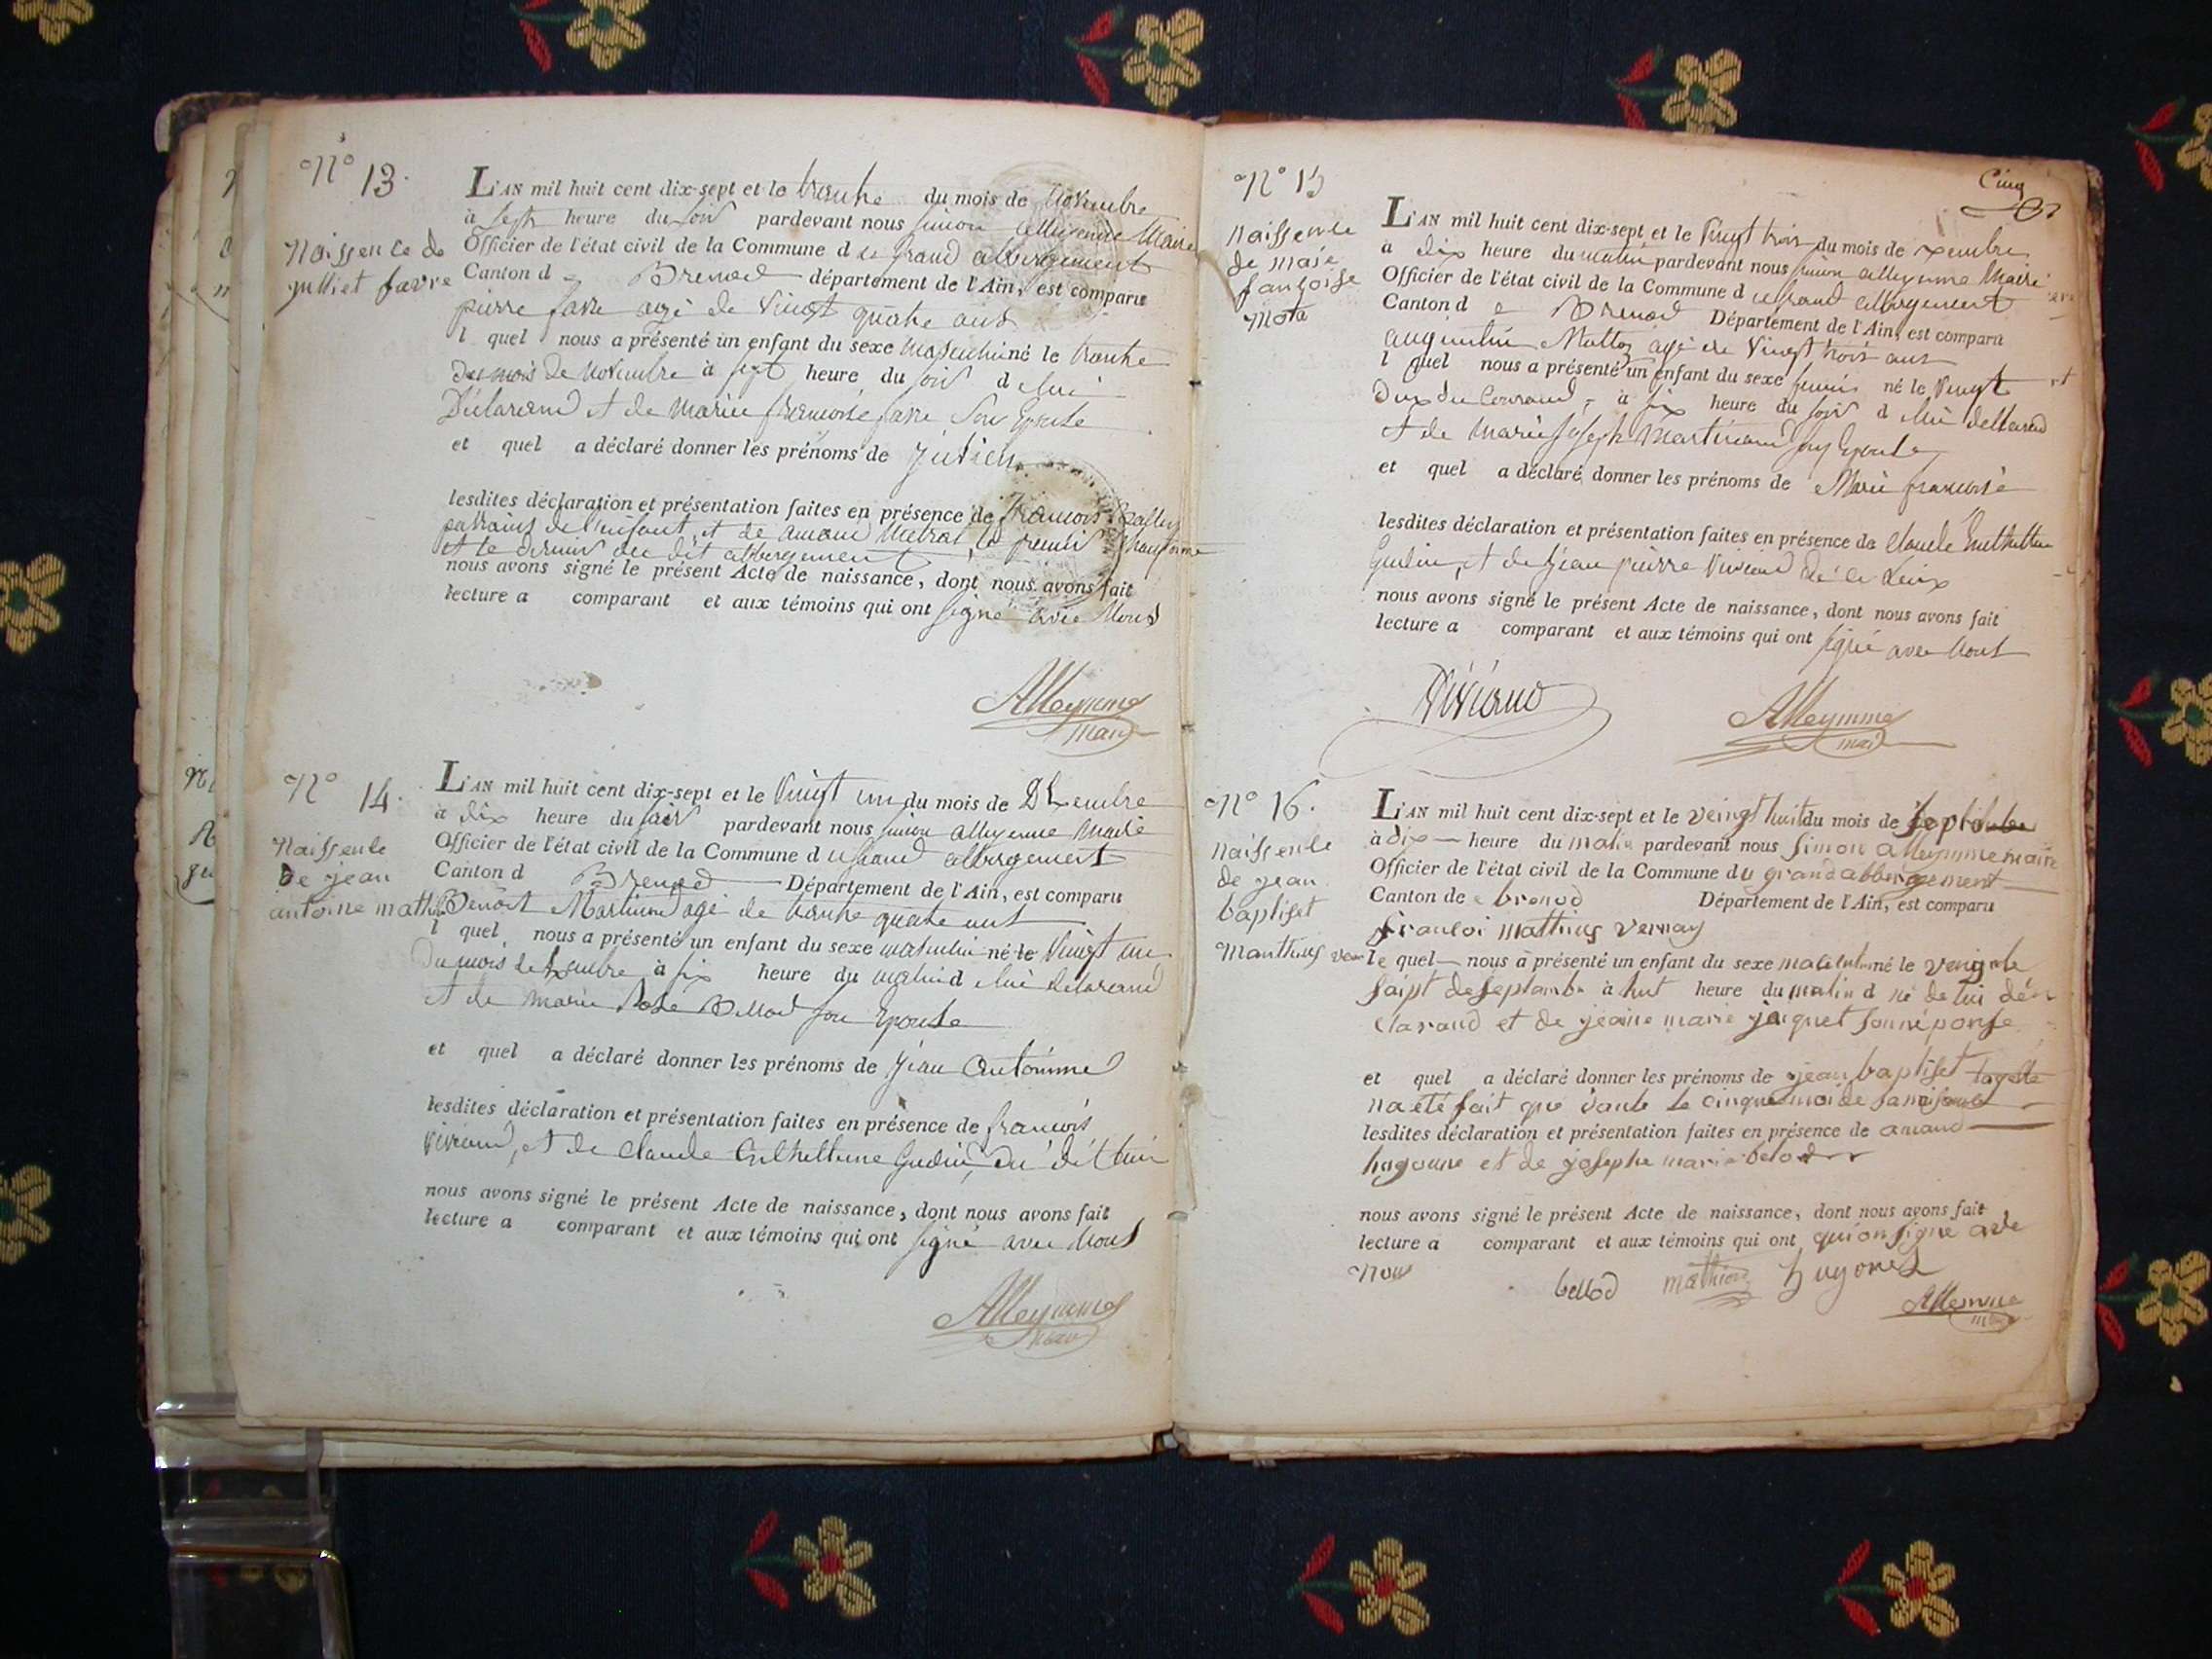 N° 13.
Naissence de
julliet favre
L'AN mil huit cent dix-sept et le trente du mois de Novembre
à sept heure du soir pardevant nous simon alleymme Maire
Officier de l'état civil de la Commune d u grand abbergement
Canton d e Brenod département de l'Ain, est comparu
pierre favre agé de vingt quatre ans
l quel nous a présenté un enfant du sexe masculin né le trente
du mois de Novembre à sept heure du soir d e lui
Déclarand et de Marie francoise favre son Epouse
et quel a déclaré donner les prénoms de julien
lesdites déclaration et présentation faites en présence de francois
parrains de l'enfant et de amand Metral le premier
et le dernier du dit abbergement
nous avons signé le présent Acte de naissance, dont nous avons fait
lecture a comparant et aux témoins qui ont signé avec Nous
Alleymme
maire
N° 14.
Naissence
De jean
antoine
L'AN mil huit cent dix-sept et le vingt un du mois de Xbre
à dix heure du soir pardevant nous simon alleymme Maire
Officier de l'état civil de la Commune d u grand abbergement
Canton d Brenod Département de l'Ain, est comparu
Benoit Martinand agé de trente quatre ans
l quel nous a présenté un enfant du sexe masculin né le vingt un
du mois de Xembre à six heure du matin d e lui declarand
et de marie Rose Bellod son Epouse
et quel a déclaré donner les prénoms de jean Antoinne
lesdites déclaration et présentation faites en présence de francois
Viviand, et de Claude Gudin, du dit lieu
nous avons signé le présent Acte de naissance, dont nous avons fait
lecture a comparant et aux témoins qui ont signé avec Nous
Alleymme
maire
Cinq
N° 15
Naissence
de Maie
françoise
L'AN mil huit cent dix-sept et le vingt trois du mois de xembre
à dix heure du matin pardevant nous simon alleymme Maire
Officier de l'état civil de la Commune d u grand abbergement
Canton d e Brenod Département de l'Ain, est comparu
agé de vingt trois ans
l quel nous a présenté un enfant du sexe feminin né le vingt
deux du Courrand, à six heure du soir d e lui dellarand
et de marie joseph Martinand son Epouse
et quel a déclaré donner les prénoms de Marie francoise
lesdites déclaration et présentation faites en présence de Claude
Gudin, et de jean pierre Viviand de ce Leiux
nous avons signé le présent Acte de naissance, dont nous avons fait
lecture a comparant et aux témoins qui ont signé avec Nous
Viviand
Alleymme
maire
N° 16.
naissence
de jean
baptiset
L'AN mil huit cent dix-sept et le veingt huit du mois de septembre
à dix heure du matin pardevant nous simon alleymme maire
Officier de l'état civil de la Commune d u grand abbergement
Canton de brenod Département de l'Ain, est comparu
francoi mathius vernay
le quel nous a présenté un enfant du sexe masculin né le veingte
saipt de septambe à huit heure du matin d né de lui dé
clarand et de jeaine marie jaquet sonn éponse
et quel a déclaré donner les prénoms de jean baptiset
na eté fait que dante le cinque moi de
lesdites déclaration et présentation faites en présence de amand
hugonne et de josephe marie belod
nous avons signé le présent Acte de naissance, dont nous avons fait
lecture a comparant et aux témoins qui ont qui on signe avec
Nous
bellod mathieu hugonet
Alleymme
maire